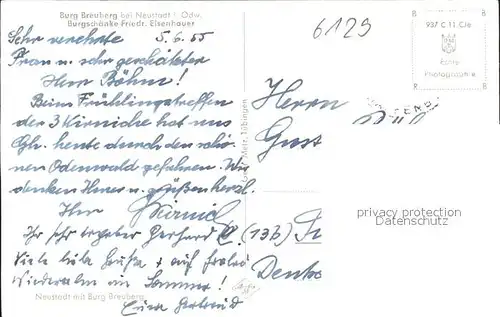 Burg Breuberg bei Neustadt i. Odw.
Burgschänke Friedr. Eisenhauer
6129
937 C 11. Cle
Echte
Photographie
B B
R B
Sehr verehrte 5.6.55
Frau u. sehr geschätzter
Herr Böhm!
Beim Frühlingstreffen
der 3 Kirniche hat uns
Ggh. heute durch den schö-
nen Odenwald gefahren. Wir
denken Ihrer u. grüßen herzl.
Ihr Kirnich
Ihr sehr ergebener Gerhard K.
Viele liebe Grüße + auf frohes
Wiedersehn im Sommer!
Eure Gertrud
Metz, Tübingen
Herrn
Gust
(13b)
Denko
privacy protection
Datenschutz
Neustadt mit Burg Breuberg